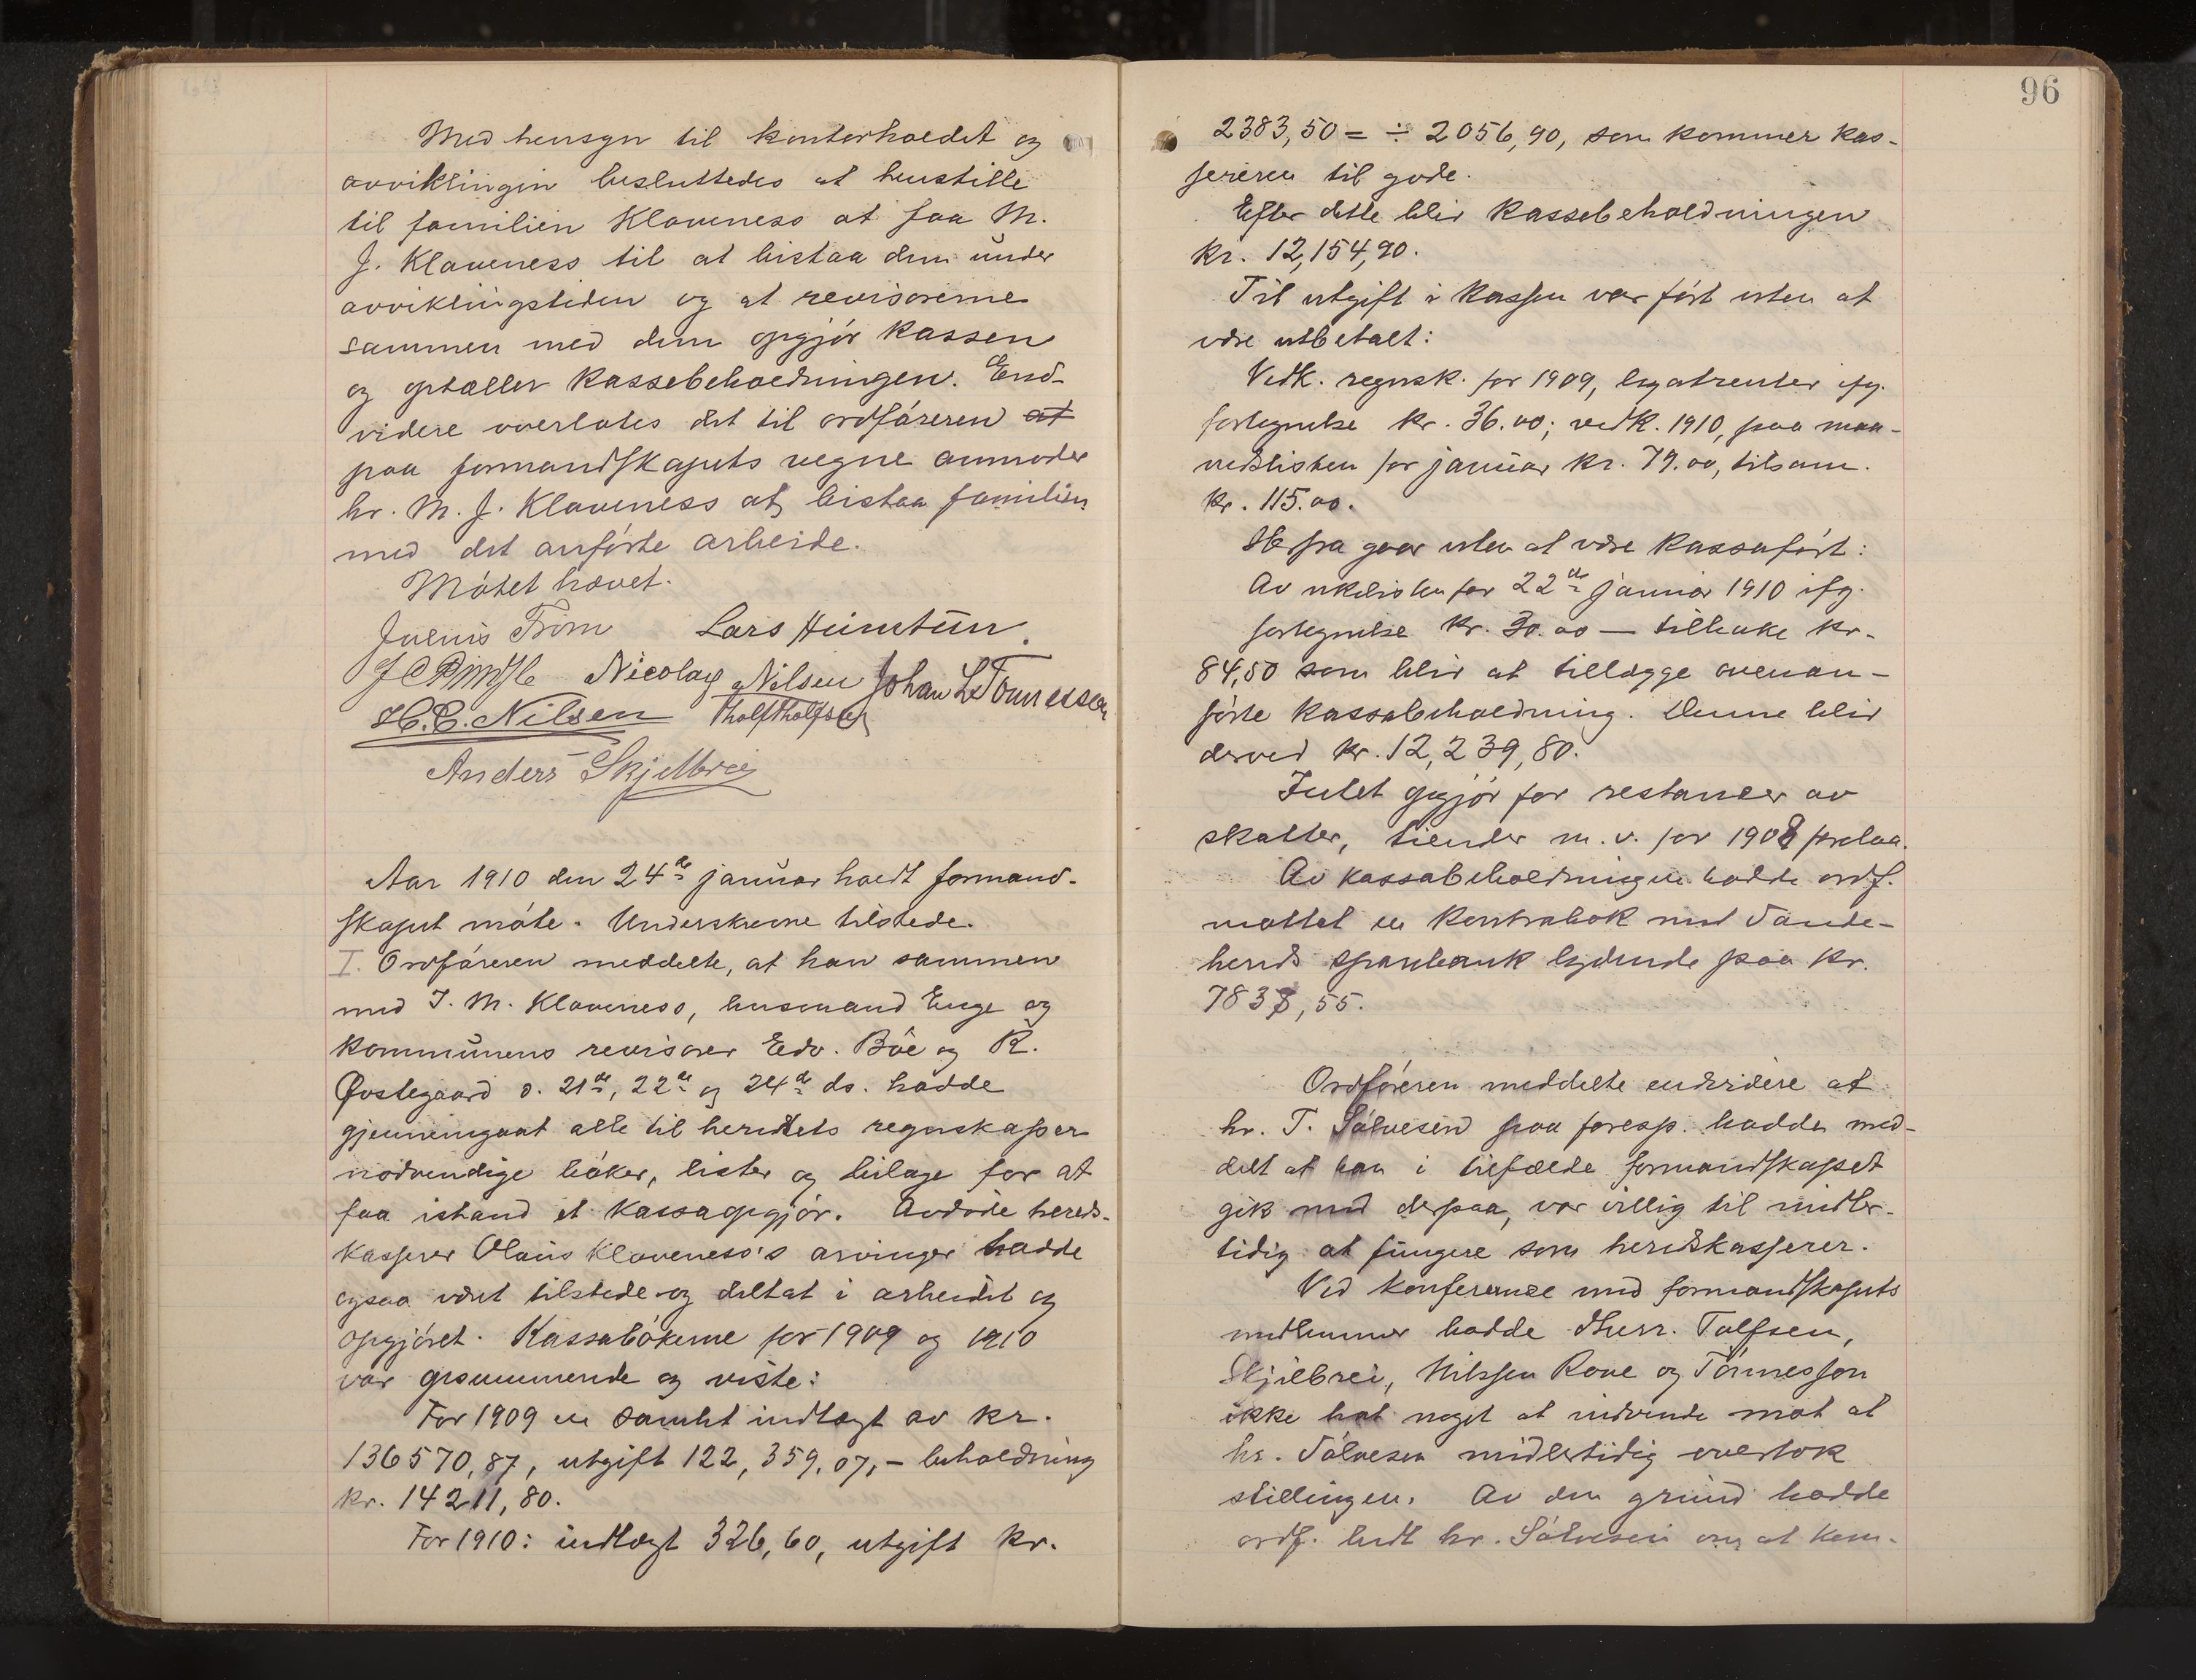 Med hensyn til kontorholdet og
avviklingen besluttedes at henstille
til familien Klaveness at faa M.
J. Klaveness til at bistaa dem under
avviklingstiden og at revisorerne
sammen med dem opgjør kassen
og optæller kassebeholdningen. End-
videre overlates det til ordføreren at
paa formandskapets vegne anmoder
hr. M. J. Klaveness at bistaa familien
med det anførte arbeide.
Møtet hævet.
Julius From Lars Huntun.
Nicolay Nilsen Johan L Tønnessen
H. C. Nilsen Tholf Tholfsen
Anders Skjelbrei
Aar 1910 den 24de januar holdt formand-
skapet møte. Underskrevne tilstede.
I. Ordføreren meddelte, at han sammen
med J. M. Klaveness, husmand Enge og
kommunens revisorer Edv. Bøe og R.
Østegaard d. 21de, 22de og 24de ds. hadde
gjennemgaat alle til heredets regnskaper
nødvendige bøker, lister og bilage for at
faa istand et kassaopgjør. Avdøde hereds-
kasserer Olaus Klaveness's arvinger hadde
ogsaa været tilstede og deltat i arbeidet og
opgjøret. Kassabøkerne for 1909 og 1910
var opsummerede og viste:
For 1909 en samlet indtægt av kr.
136570,87, utgift 122,359,07,- beholdning
kr. 14211,80.
For 1910: indtægt 326,60, utgift kr.
96
2383,50 = ÷ 2056,90, som kommer kas-
sereren til gode.
Efter dette blir kassebeholdningen
kr. 12,154,90.
Til utgift i kassen var ført uten at
være utbetalt:
Vedk. regnsk. for 1909, legatrenter ifg.
fortegnelse kr. 36.00; vedk. 1910, paa maa-
nedslisten for januar kr. 79.00, tilsam.
kr. 115.00.
Herfra gaar uten at være kassaført:
Av ukelisten for 22de januar 1910 ifg.
fortegnelse kr. 30.00 — tilbake kr.
84,50 som blir at tillægge ovenan-
førte kassabeholdning. Denne blir
derved kr. 12,239,80.
Intet opgjør for restancer av
skatter, tiender m. v. for 1908 forelaa.
Av kassabeholdningen hadde ordf.
mottat en kontrabok med Sande-
hereds sparebank lydende paa kr.
7838,55.
Ordføreren meddelte endvidere at
hr. T. Sølvesen paa foresp. hadde med-
delt at han i tilfælde formandskapet
gik med derpaa, var villig til midler-
tidig at fungere som heredskasserer.
Ved konferanse med formandskapets
medlemmer hadde Dherr. Tolfsen,
Skjelbrei, Nilssen Rove og Tønnesson
ikke hat noget at indvende mot at
hr. Sølvesen midlertidig overtok
stillingen. Av den grund hadde
ordf. bedt hr. Sølvesen om at kom-